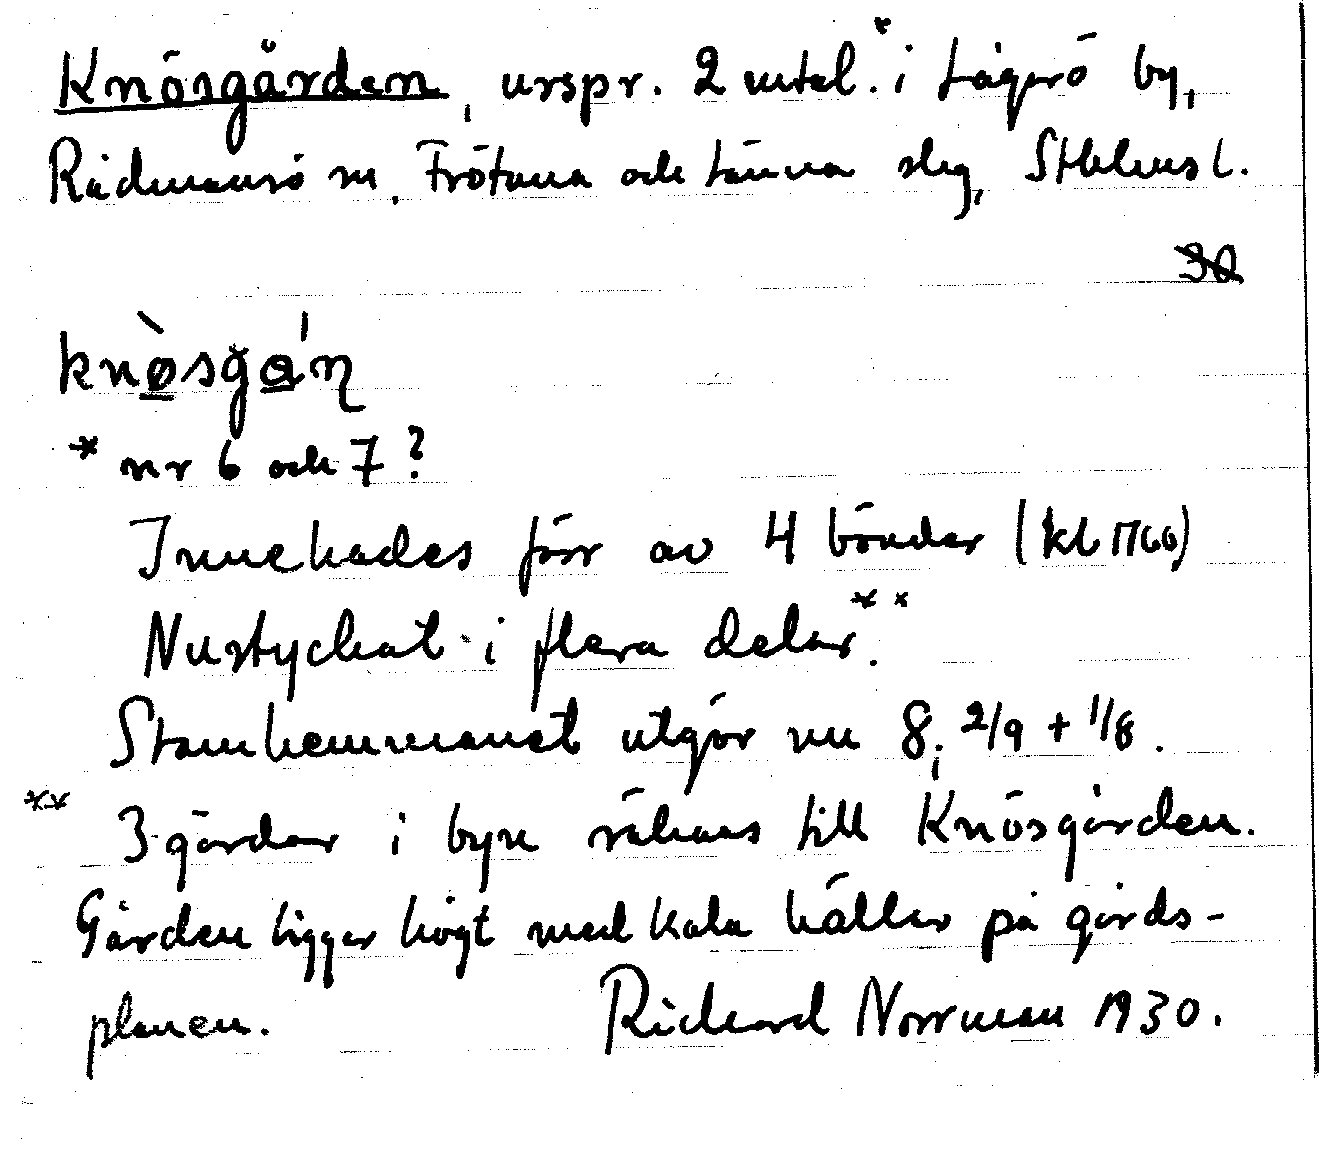 Knösgården, urspr. 2 mtal.* i Lågerö by,
Rådmansö sn. Frötuna och Länna slg, Sthlms l.
30
knø̀sgán
* nr 6 och 7?
Innehades förr av 4 bönder (kb 1766)
Nu styckat i flera delar.**
Stamhemmanet utgör nu 8; 2/9 + 1/8.
** 3 gårdar i byn räknas till Knösgården.
Gården ligger högt med kala hällar på gårds-
planen. Rickard Norrman 1930.